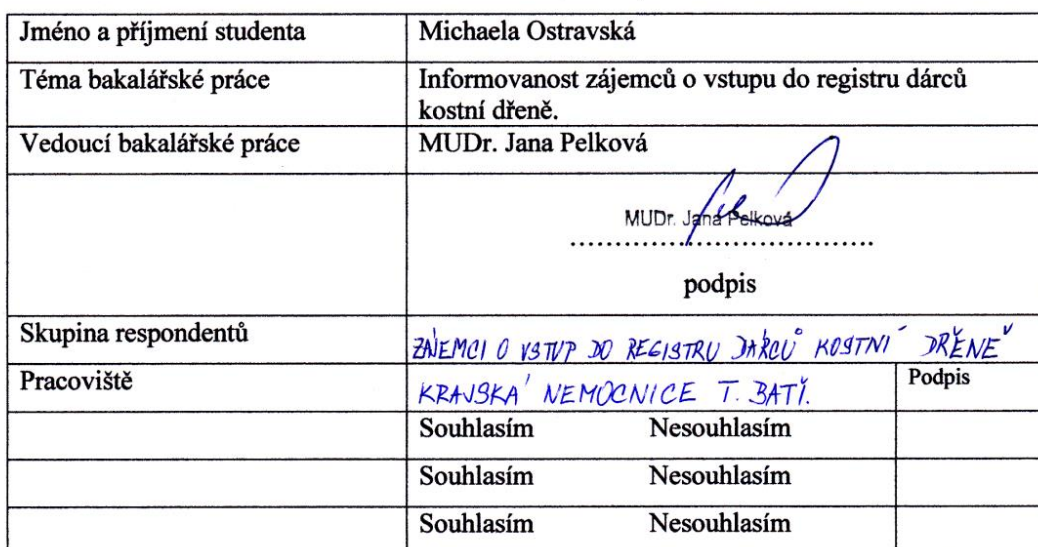 Jméno a příjmení studenta Michaela Ostravská
Téma bakalářské práce Informovanost zájemců o vstupu do registru dárců
kostní dřeně.
Vedoucí bakalářské práce MUDr. Jana Pelková
MUDr. Jana Pelková
podpis
Skupina respondentů ZÁJEMCI O VSTUP DO REGISTRU DÁRCŮ KOSTNÍ DŘENĚ
Pracoviště KRAJSKÁ NEMOCNICE T. BATI. Podpis
Souhlasím Nesouhlasím
Souhlasím Nesouhlasím
Souhlasím Nesouhlasím